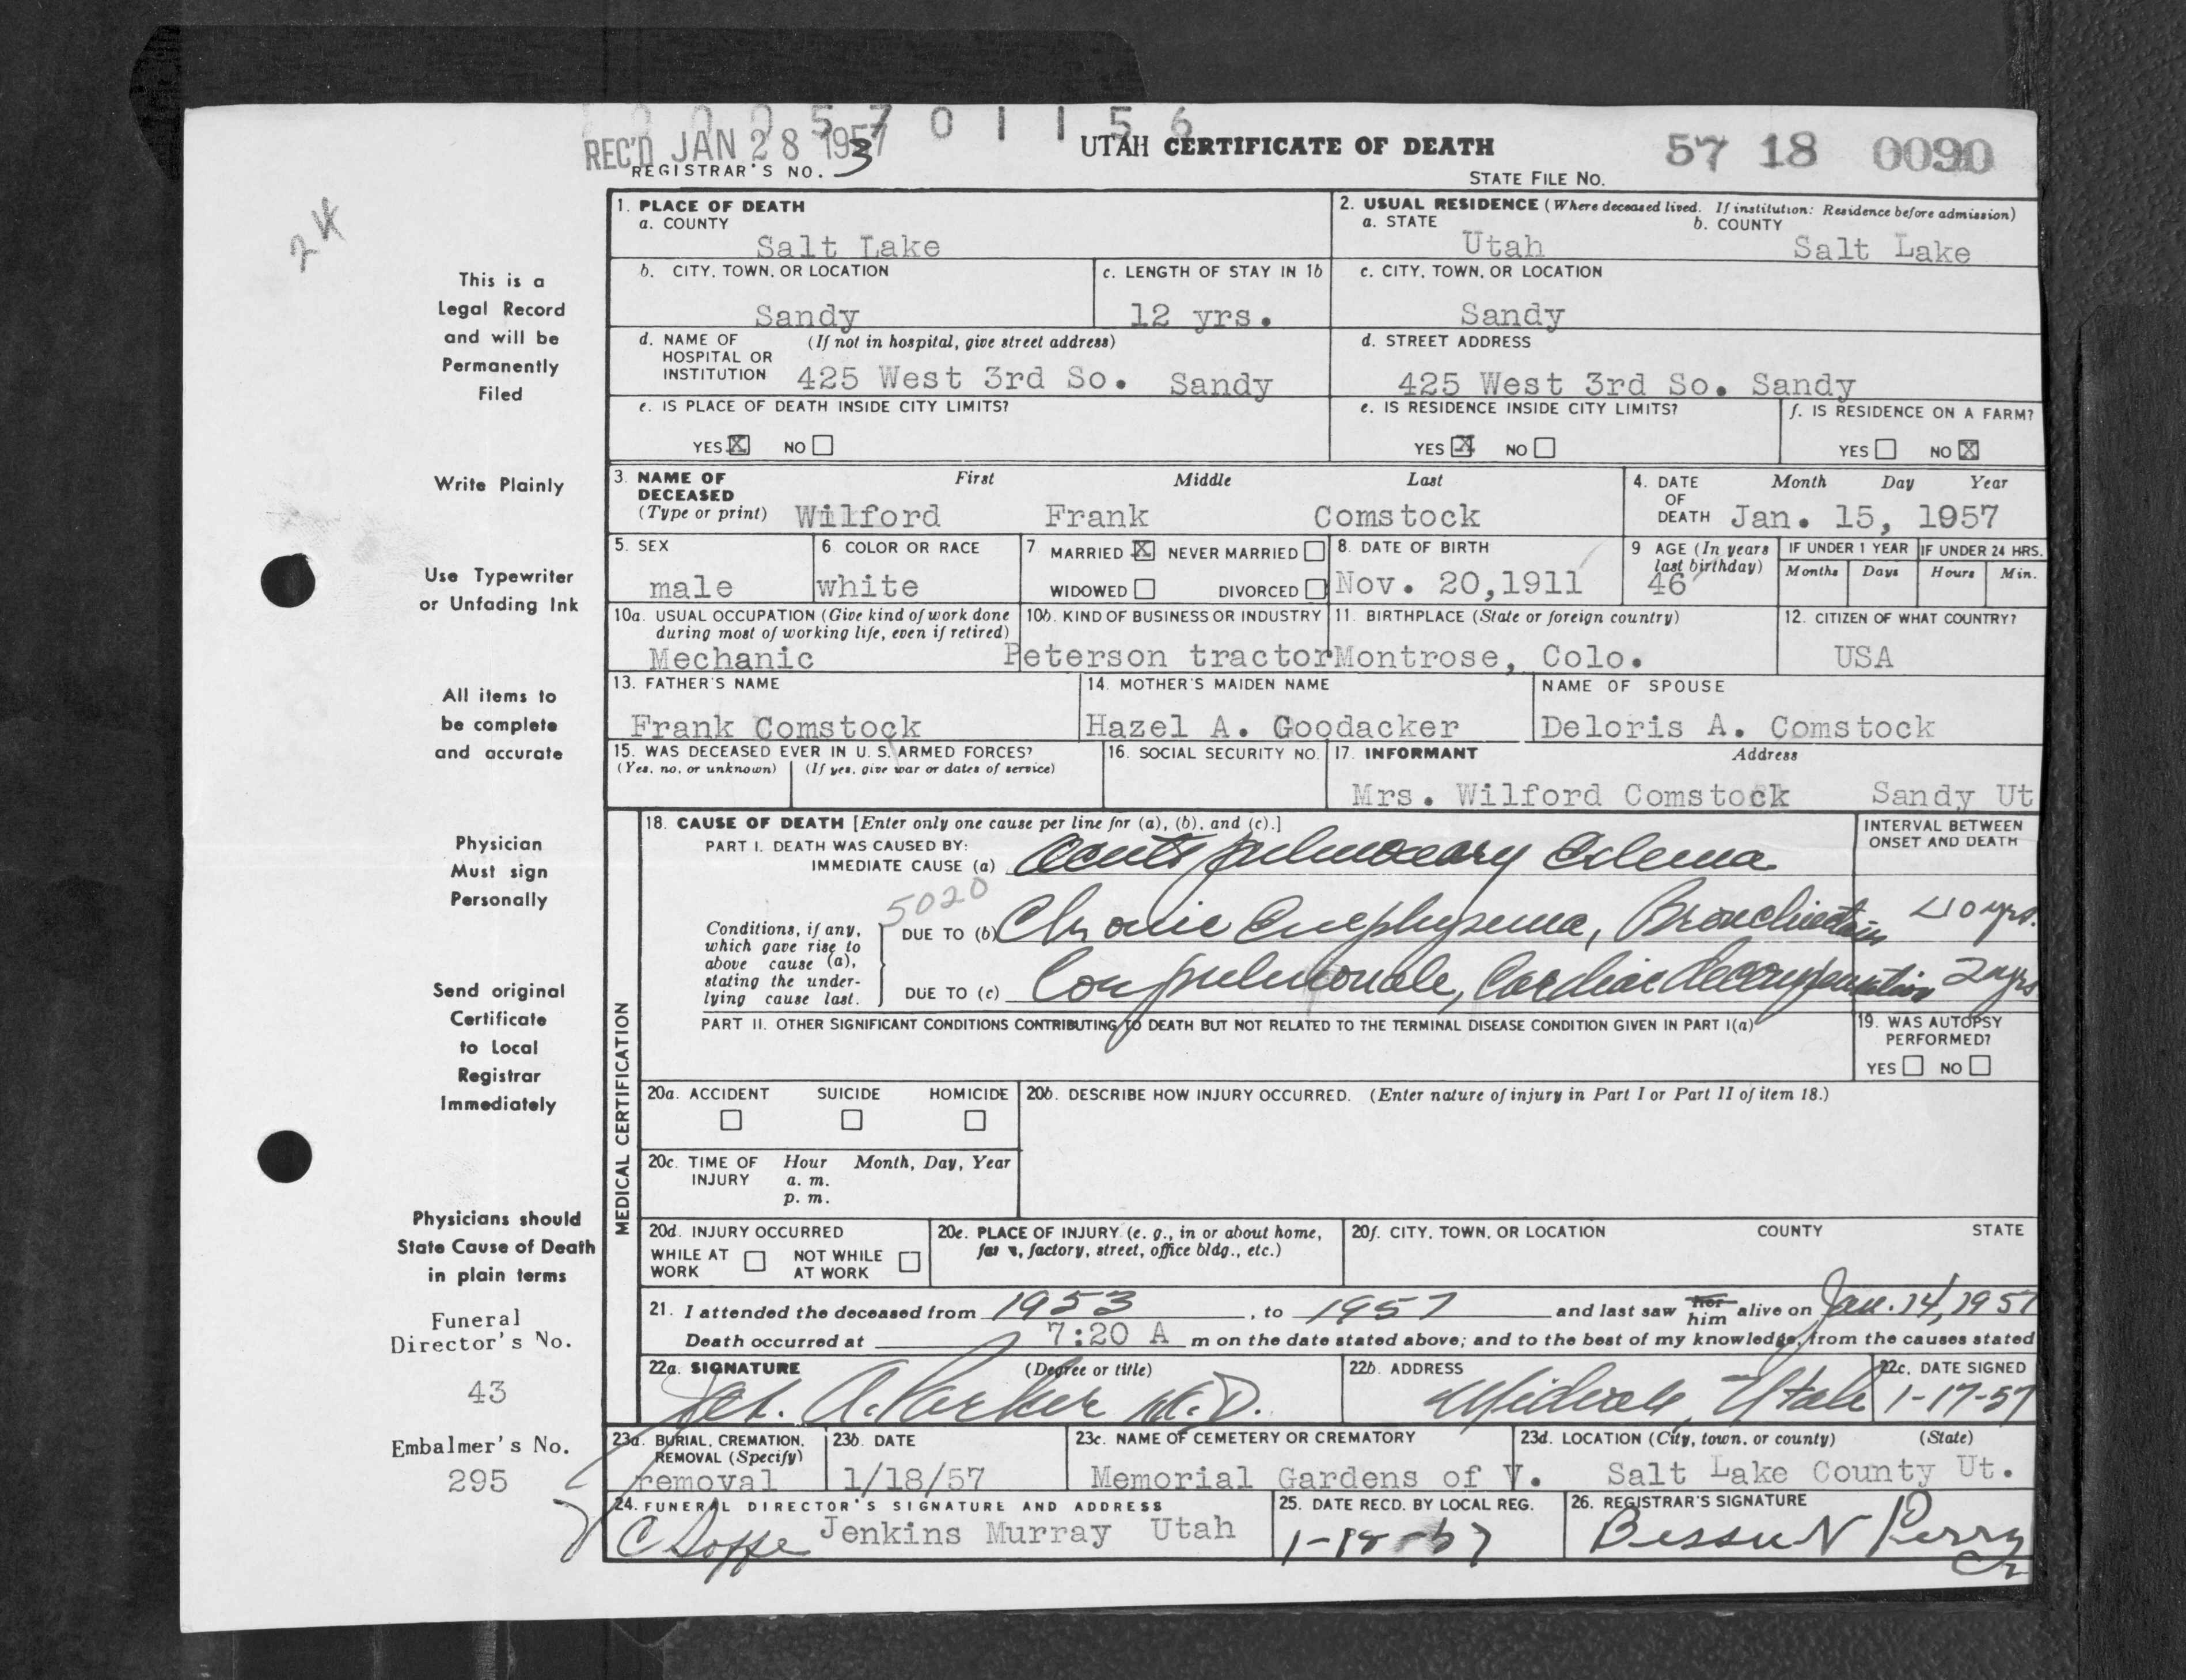 000 5 7 0 1 1 5 6
REC'D JAN 28 1957
UTAH CERTIFICATE OF DEATH
57 18 0090
REGISTRAR'S NO. 3
STATE FILE NO.
2K
This is a
Legal Record
and will be
Permanently
Filed
Write Plainly
Use Typewriter
or Unfading Ink
All items to
be complete
and accurate
Physician
Must sign
Personally
Send original
Certificate
to Local
Registrar
Immediately
Physicians should
State Cause of Death
in plain terms
Funeral
Director's No.
43
Embalmer's No.
295
1. PLACE OF DEATH
a. COUNTY
Salt Lake
2. USUAL RESIDENCE (Where deceased lived. If institution: Residence before admission)
a. STATE b. COUNTY
Utah Salt Lake
b. CITY, TOWN, OR LOCATION
Sandy
c. LENGTH OF STAY IN 1b
12 yrs.
c. CITY, TOWN, OR LOCATION
Sandy
d. NAME OF (If not in hospital, give street address)
HOSPITAL OR
INSTITUTION 425 West 3rd So. Sandy
d. STREET ADDRESS
425 West 3rd So. Sandy
e. IS PLACE OF DEATH INSIDE CITY LIMITS?
YES X NO
e. IS RESIDENCE INSIDE CITY LIMITS?
YES X NO
f. IS RESIDENCE ON A FARM?
YES NO X
3. NAME OF First Middle Last
DECEASED
(Type or print) Wilford Frank Comstock
4. DATE Month Day Year
OF
DEATH Jan. 15, 1957
5. SEX
male
6. COLOR OR RACE
white
7 MARRIED X NEVER MARRIED
WIDOWED DIVORCED
8. DATE OF BIRTH
Nov. 20,1911
9 AGE (In years
last birthday)
46
IF UNDER 1 YEAR
Months Days
IF UNDER 24 HRS.
Hours Min.
10a. USUAL OCCUPATION (Give kind of work done
during most of working life, even if retired)
Mechanic
10b. KIND OF BUSINESS OR INDUSTRY
Peterson tractor
11. BIRTHPLACE (State or foreign country)
Montrose, Colo.
12. CITIZEN OF WHAT COUNTRY?
USA
13. FATHER'S NAME
Frank Comstock
14. MOTHER'S MAIDEN NAME
Hazel A. Goodacker
NAME OF SPOUSE
Deloris A. Comstock
15. WAS DECEASED EVER IN U. S. ARMED FORCES?
(Yes, no, or unknown) (If yes, give war or dates of service)
16. SOCIAL SECURITY NO.
17. INFORMANT Address
Mrs. Wilford Comstock Sandy Ut
MEDICAL CERTIFICATION
18. CAUSE OF DEATH [Enter only one cause per line for (a), (b), and (c).]
INTERVAL BETWEEN
ONSET AND DEATH
PART I. DEATH WAS CAUSED BY:
IMMEDIATE CAUSE (a) Acute pulmonary Edema
5020
Conditions, if any,
which gave rise to
above cause (a),
stating the under-
lying cause last.
DUE TO (b) Chronic Emphysema, Bronchiectasis 10 yrs.
DUE TO (c) Cor pulmonale, Cardiac decompensation 2 yrs
PART II. OTHER SIGNIFICANT CONDITIONS CONTRIBUTING TO DEATH BUT NOT RELATED TO THE TERMINAL DISEASE CONDITION GIVEN IN PART I(a)
19. WAS AUTOPSY
PERFORMED?
YES NO
20a. ACCIDENT SUICIDE HOMICIDE
20b. DESCRIBE HOW INJURY OCCURRED. (Enter nature of injury in Part I or Part II of item 18.)
20c. TIME OF Hour Month, Day, Year
INJURY a. m.
p. m.
20d. INJURY OCCURRED
WHILE AT NOT WHILE
WORK AT WORK
20e. PLACE OF INJURY (e. g., in or about home,
farm, factory, street, office bldg., etc.)
20f. CITY, TOWN, OR LOCATION COUNTY STATE
21. I attended the deceased from 1953, to 1957 and last saw her him alive on Jan. 14, 1957
Death occurred at 7:20 A m on the date stated above; and to the best of my knowledge, from the causes stated
22a. SIGNATURE (Degree or title)
A. Parker M.D.
22b. ADDRESS
Midvale, Utah
22c. DATE SIGNED
1-17-57
23a. BURIAL, CREMATION,
REMOVAL (Specify)
removal
23b. DATE
1/18/57
23c. NAME OF CEMETERY OR CREMATORY
Memorial Gardens of V.
23d. LOCATION (City, town, or county) (State)
Salt Lake County Ut.
24. FUNERAL DIRECTOR'S SIGNATURE AND ADDRESS
Jenkins Murray Utah
25. DATE RECD. BY LOCAL REG.
1-18-57
26. REGISTRAR'S SIGNATURE
Bessie N Perry